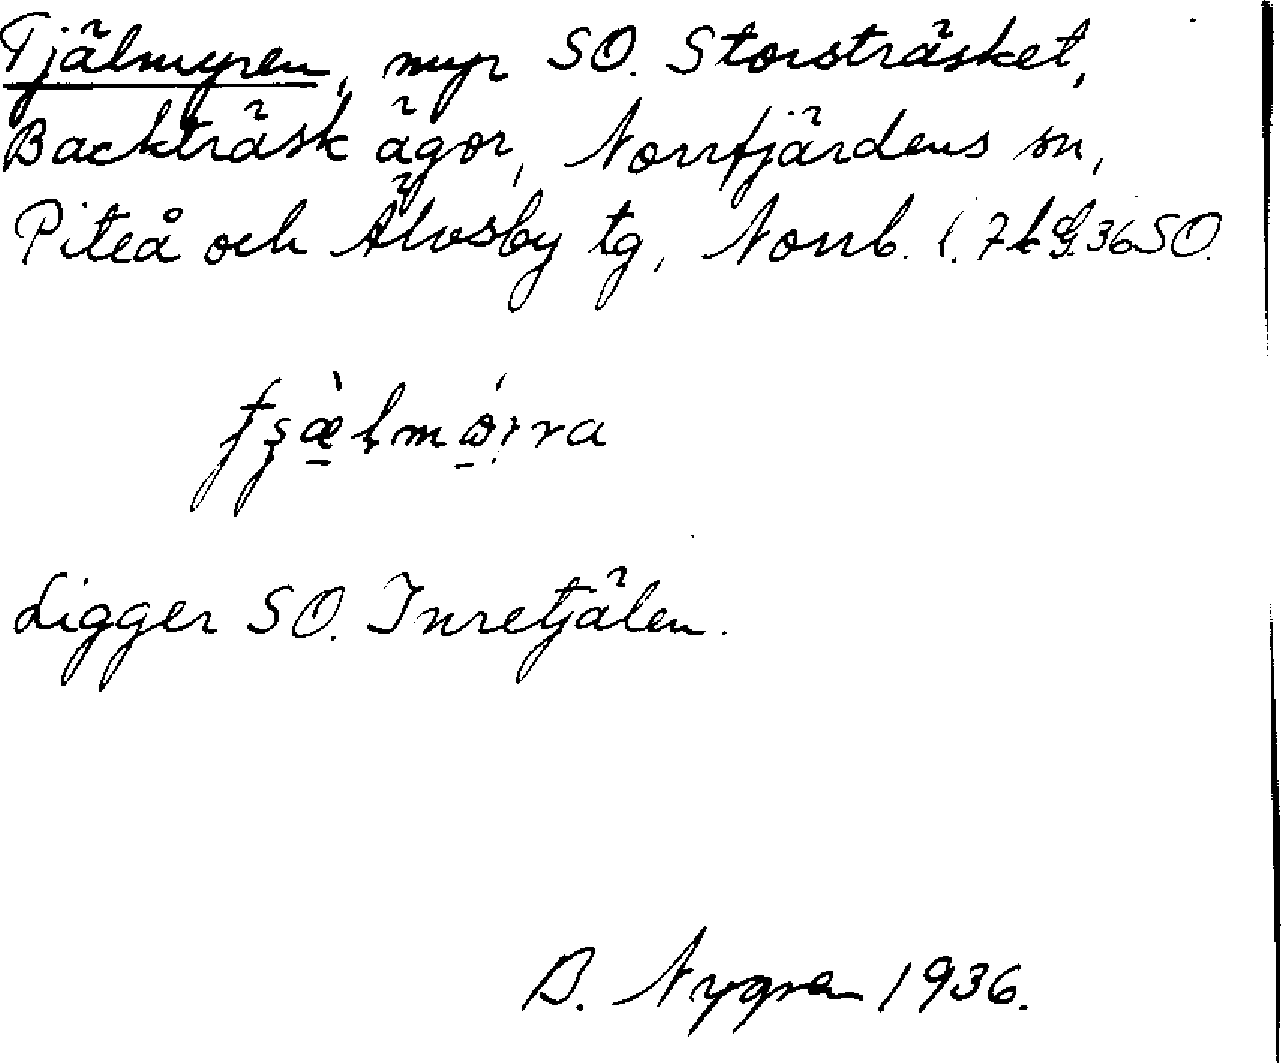 Tjälmyren, myr SO. Storsträsket,
Backträsk ägor, Norrfjärdens sn,
Piteå och Älvsby tg, Norrb. l. 36 SO.
Ligger SO. Inretjälen.
B. Nygren 1936.